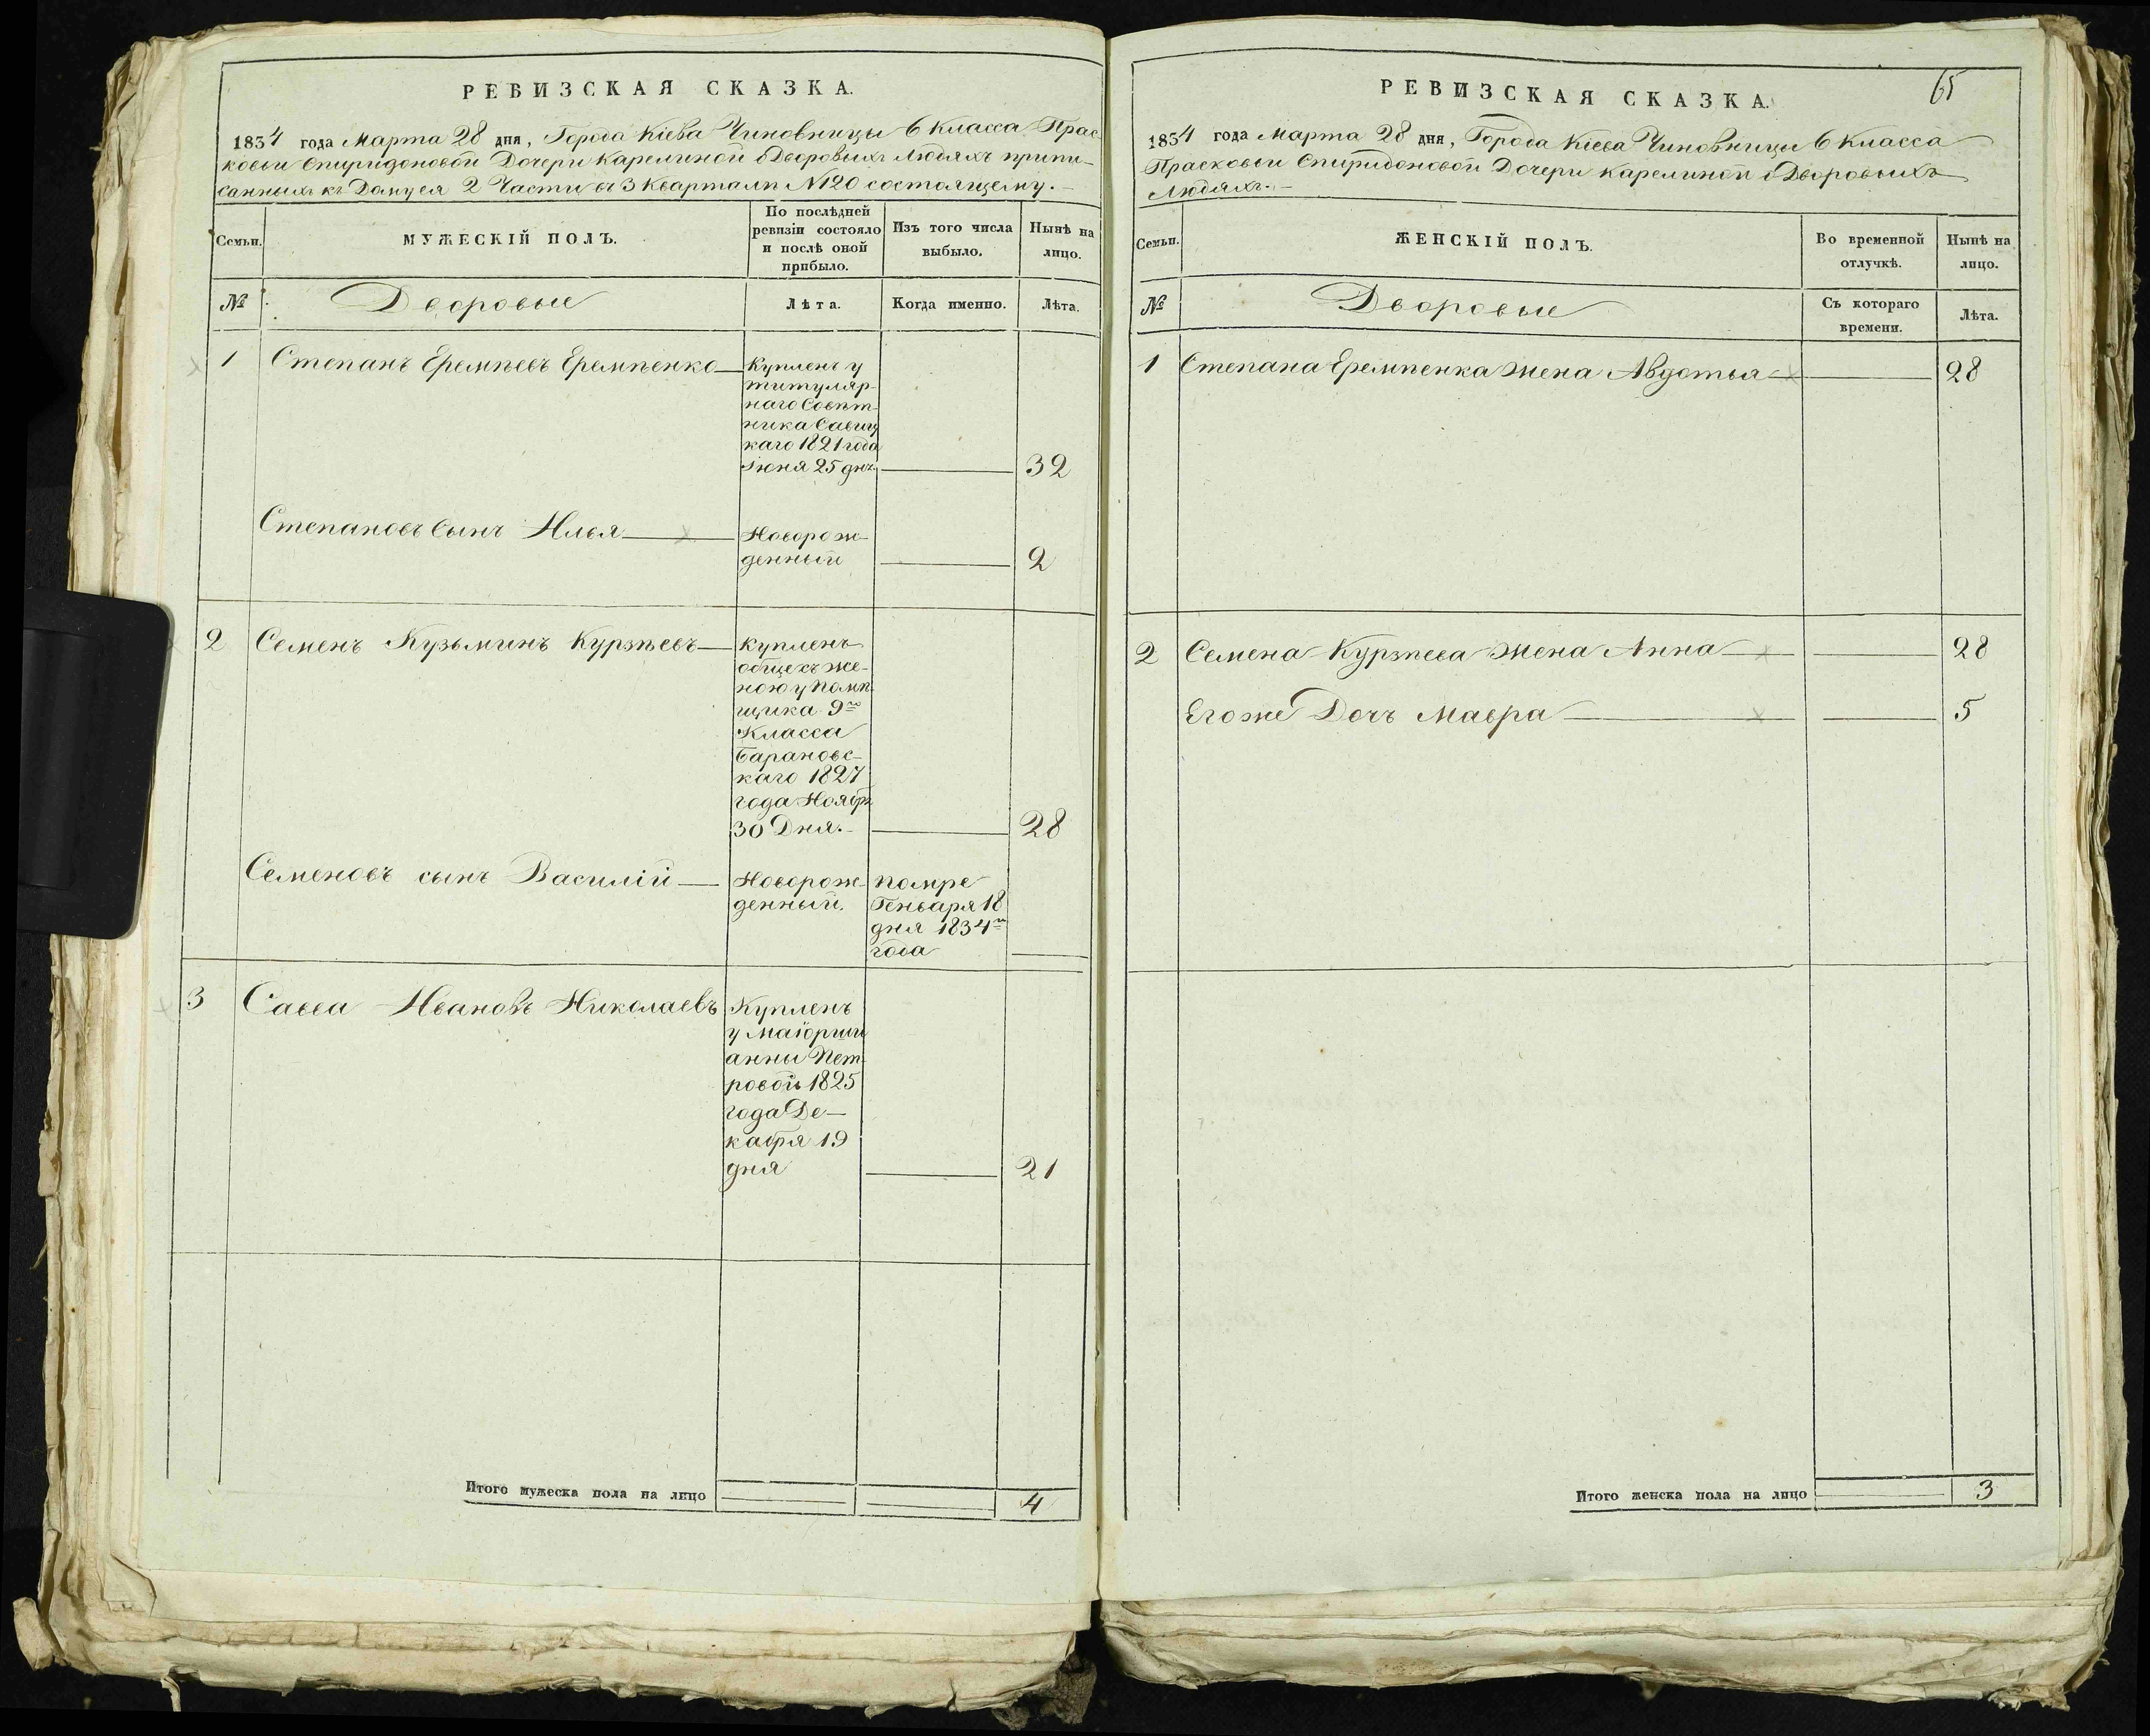 РЕВИЗСКАЯ СКАЗКА.
1834 года Марта 28 дня, Города Кіева Чиновницы 6 Класса Прас-
ковьи Спиридоновой Дочери Карелиной о Дворовыхъ Людяхъ припи-
санныхъ къ Дому ея 2 Части въ 3 Кварталѣ №120 состоящему.
Семьи.
МУЖЕСКІЙ ПОЛЪ.
По послѣдней
ревизіи состояло
и послѣ оной
прибыло.
Изъ того числа
выбыло.
Нынѣ на
лицо.
№
Дворовые
Лѣта.
Когда именно.
Лѣта.
1 Степанъ Еремѣевъ Еремѣенко
Купленъ у
титуляр-
наго Совѣт-
ника Савиц
каго 1821 года
Іюня 25 дня
32
Степановъ Сынъ Илья
Новорож-
денный
2
2 Семенъ Кузьминъ Курзѣевъ
Купленъ
обще съ же-
ною у Помѣ-
щика 9го
Класса
Барановс-
каго 1827
года Ноября
30 Дня.
28
Семеновъ сынъ Василій
Новорож-
денный.
помре
Генваря 18
дня 1834го
года
3 Савва Ивановъ Николаевъ
Купленъ
у Маіорши
анны Пет-
ровой 1825
года Де-
кабря 19
дня
21
Итого мужеска пола на лицо
4
65
РЕВИЗСКАЯ СКАЗКА.
1834 года Марта 28 дня, Города Кіева Чиновницы 6 Класса
Прасковьи Спиридоновой Дочери Карелиной о Дворовыхъ
Людяхъ.
Семьи.
ЖЕНСКІЙ ПОЛЪ.
Во временной
отлучкѣ.
Нынѣ на
лицо.
№
Дворовые
Съ котораго
времени.
Лѣта.
1 Степана Еремѣенка жена Авдотья 28
2 Семена Курзѣева жена Анна 28
Его же Дочь Мавра 5
Итого женска пола на лицо
3